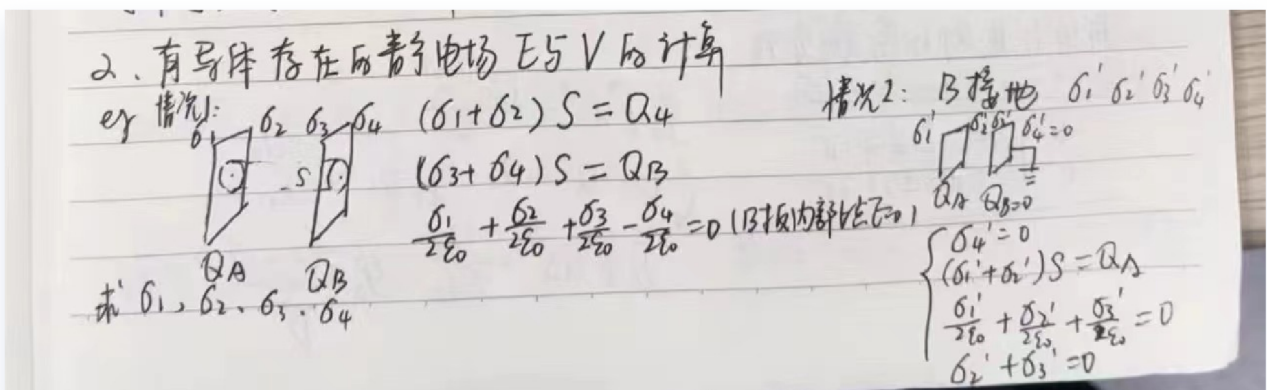 2、有导体存在的静电场 E与V的计算
eg 情况1:
σ1 σ2 σ3 σ4
S
QA QB
求 σ1、σ2、σ3、σ4
(σ1+σ2) S = QA
(σ3+σ4) S = QB
σ1/2ε0 + σ2/2ε0 + σ3/2ε0 - σ4/2ε0 = 0 (B板内部E=0)
情况2: B接地 σ1' σ2' σ3' σ4'
σ1' σ2' σ3' σ4'=0
QA QB=0
σ4'=0
(σ1'+σ2')S = QA
σ1'/2ε0 + σ2'/2ε0 + σ3'/2ε0 = 0
σ2'+σ3'=0